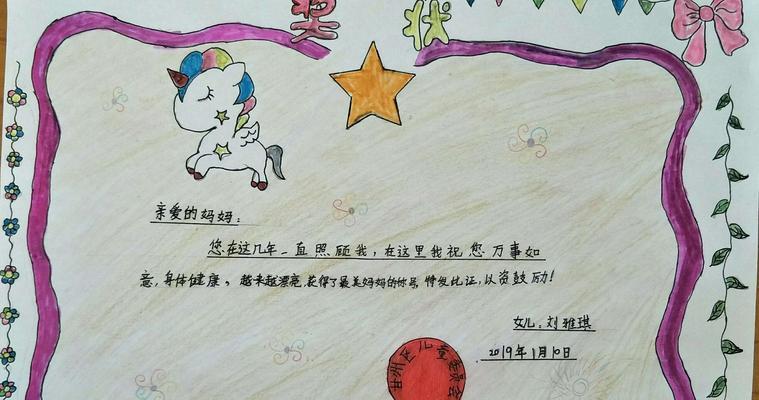 奖状
亲爱的妈妈：
您在这几年一直照顾我，在这里我祝您万事如
意，身体健康，越来越漂亮，获得了最美妈妈的称号，特发此证，以资鼓励！
女儿：刘雅琪
2019年1月10日
甘州区儿童委员会